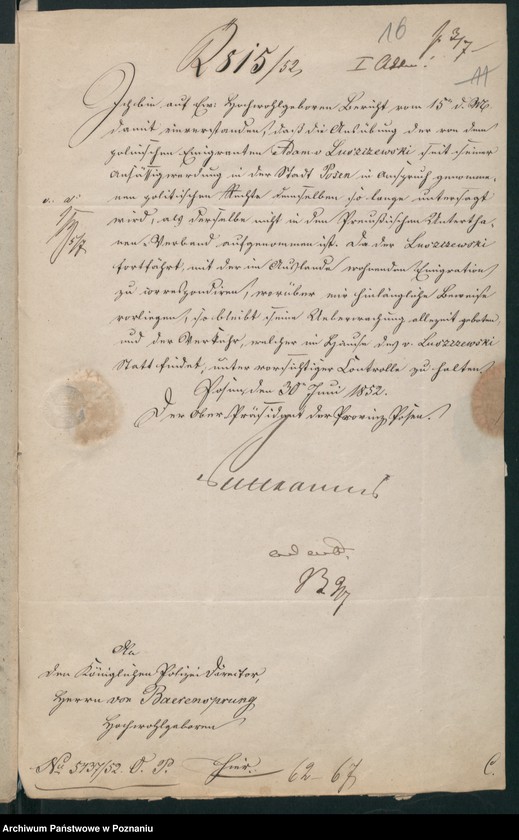 16
R 515/52
pr 3/7
I Abth.
11
Ich bin auf Ew: Hochwohlgeboren Bericht vom 15n d. M.
damit einverstanden, daß die Ausübung der von dem
polnischen Emigranten Adam v Luszizewski seit seiner
Ansässigwerdung in der Stadt Posen in Anspruch genomme-
nen politischen Rechte demselben so lange untersagt
wird, als derselbe nicht in den Preussischen Untertha-
nen-Verband aufgenommen ist. Da der Luszizewski
fortfährt, mit der im Auslande wohnenden Emigration
zu correspondiren, worüber mir hinlängliche Beweise
vorliegen, so bleibt seine Ueberwachung allezeit geboten,
und der Verkehr, welcher im Hause des v. Luszizewski
Statt findet, unter vorsichtiger Controlle zu halten.
Posen, den 30n Juni 1852.
Der Ober-Präsident der Provinz Posen.
ad acta.
B 9/7
An
den Königlichen Polizei Director,
Herrn von Baerensprung
Hochwohlgeboren
No 5737/52. O. P. hier.
62-67
C.
Archiwum Państwowe w Poznaniu